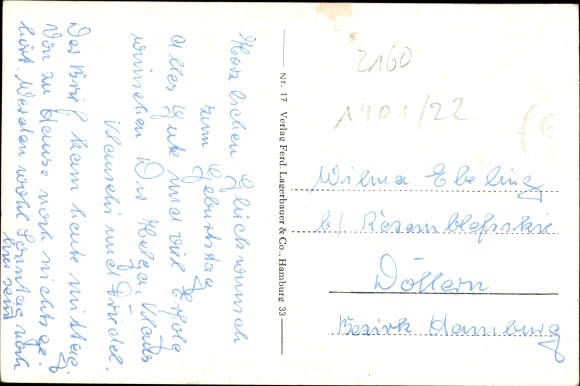 Herzlichen Glückwunsch
zum Geburtstag
Alles Gute und viel Erfolg
wünschen Dir Helga Klaus
Klauschi und Friedel.
Der Brief kam heute mittag.
Von zu Hause noch nichts ge-
hört. Werden wohl Sonntag noch
hier sein
Nr. 17 Verlag Ferd. Lagerbauer & Co., Hamburg 33
2160
1401/22
Wilma Ebeling
b/
Döllern
Bezirk Hamburg